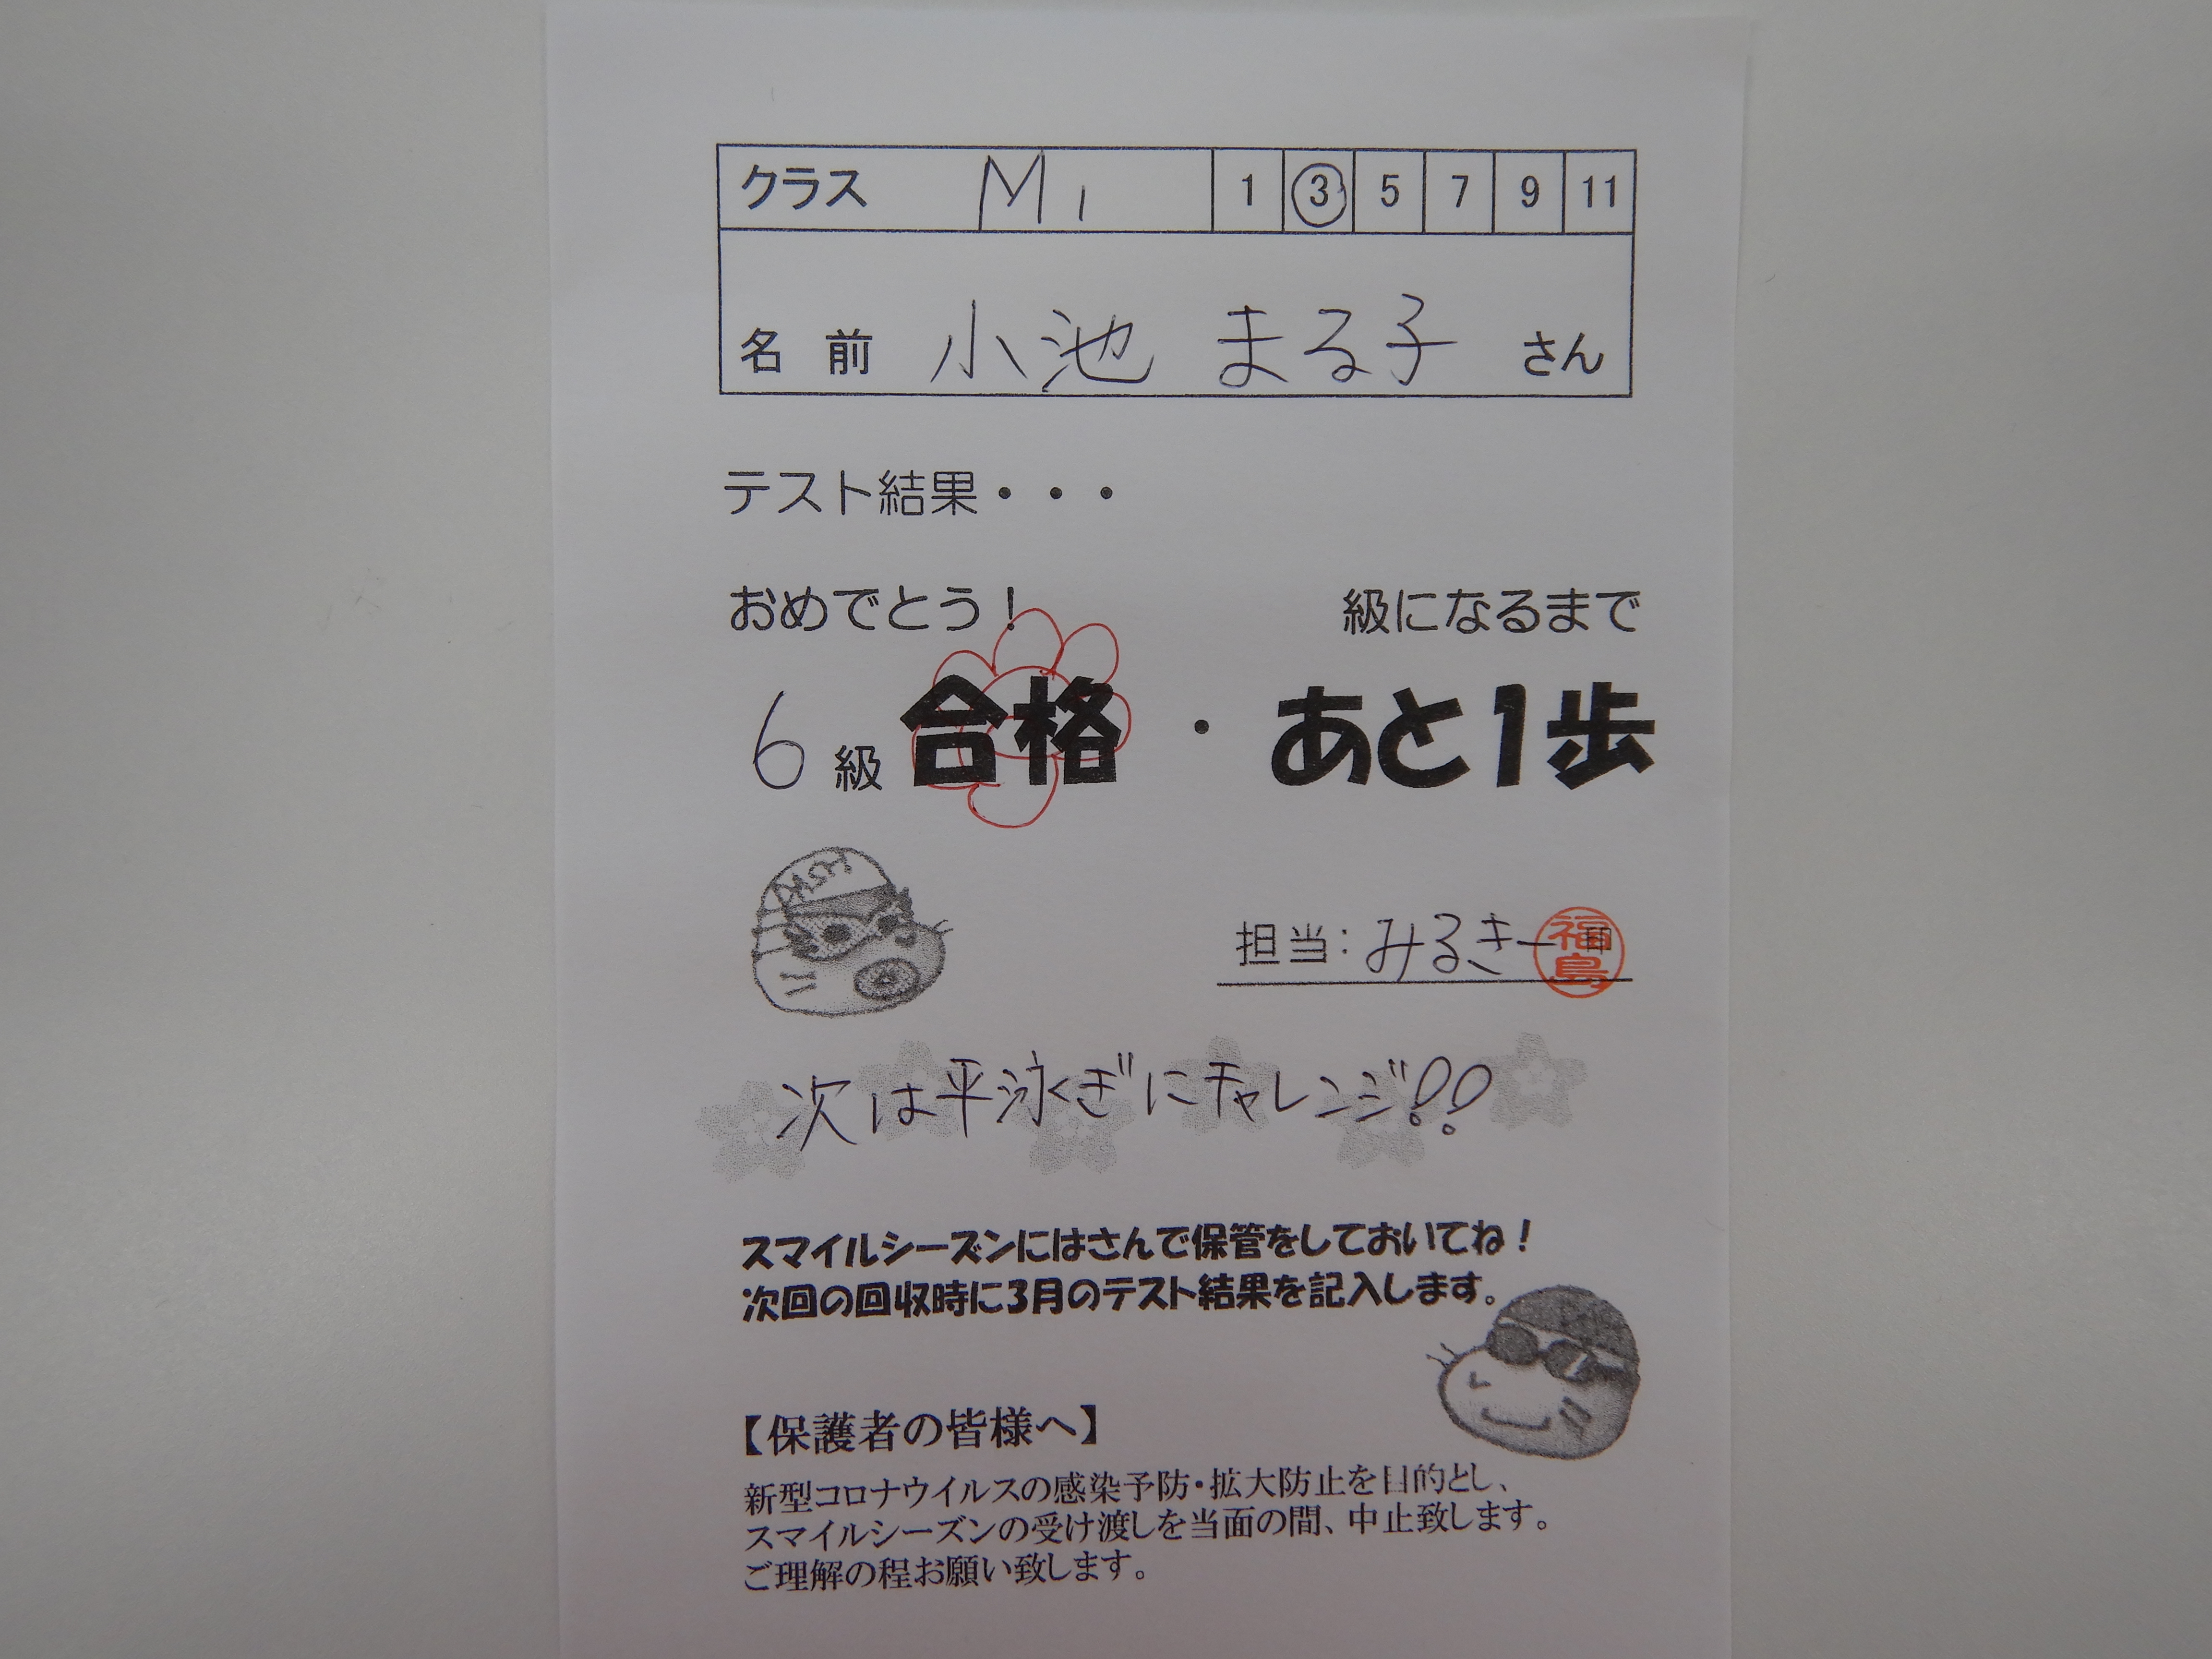 クラス M1 1 3 5 7 9 11
名前 小池 まる子 さん
テスト結果・・・
おめでとう! 級になるまで
6級 合格 ・ あと1歩
担当:みるきー 印 福島
次は平泳ぎにチャレンジ!!
スマイルシーズンにはさんで保管をしておいてね!
次回の回収時に3月のテスト結果を記入します。
【保護者の皆様へ】
新型コロナウイルスの感染予防・拡大防止を目的とし、
スマイルシーズンの受け渡しを当面の間、中止致します。
ご理解の程お願い致します。